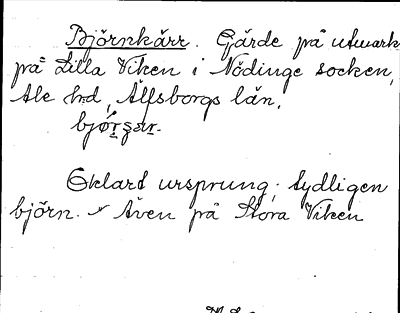 Björnkärr. Gärde på utmark
på Lilla Viken i Nödinge socken,
Ale hrd, Älfsborgs län.
Oklart ursprung; tydligen
björn. Även på Stora Viken